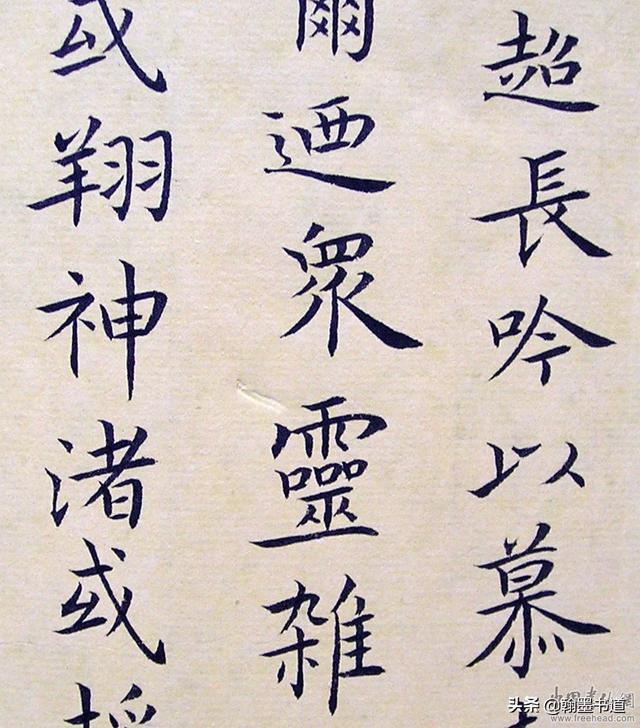 超長吟以慕
爾迺眾靈雑
或翔神渚或
www.freehead.com
头条 @翰墨书道